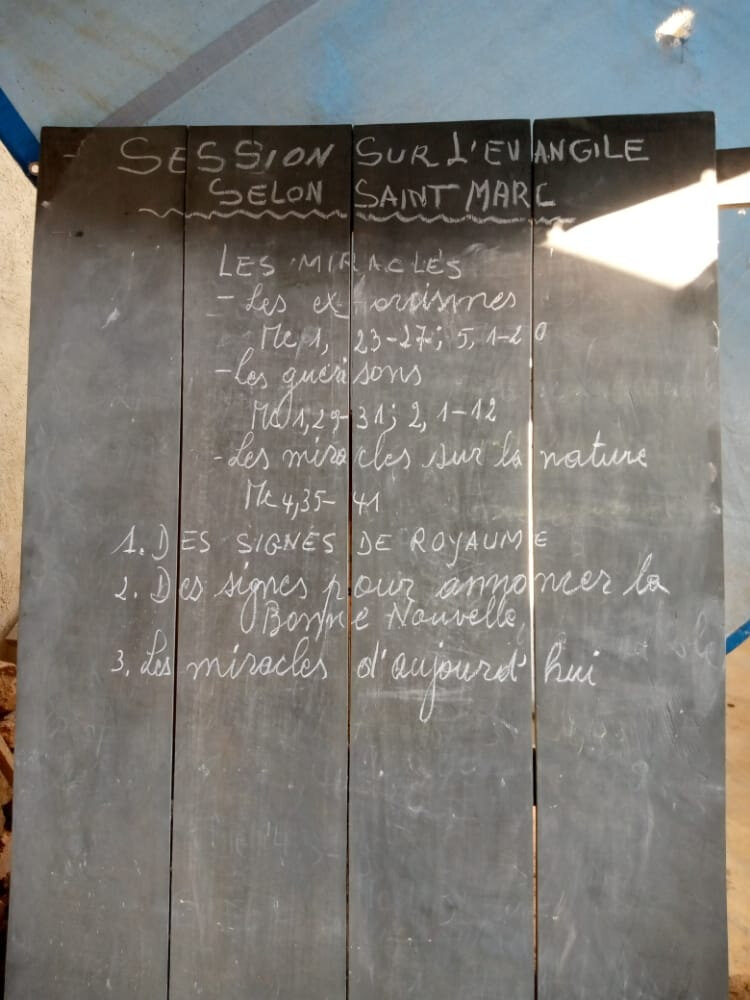 - SESSION SUR L'EVANGILE
SELON SAINT MARC
LES MIRACLES
- Les exorcismes
Mc 1, 23-27; 5, 1-20
- Les guérisons
Mc 1,29-31; 2, 1-12
- Les miracles sur la nature
Mc 4,35-41
1. DES SIGNES DE ROYAUME
2. Des signes pour annoncer la
Bonne Nouvelle
3. Les miracles d'aujourd'hui